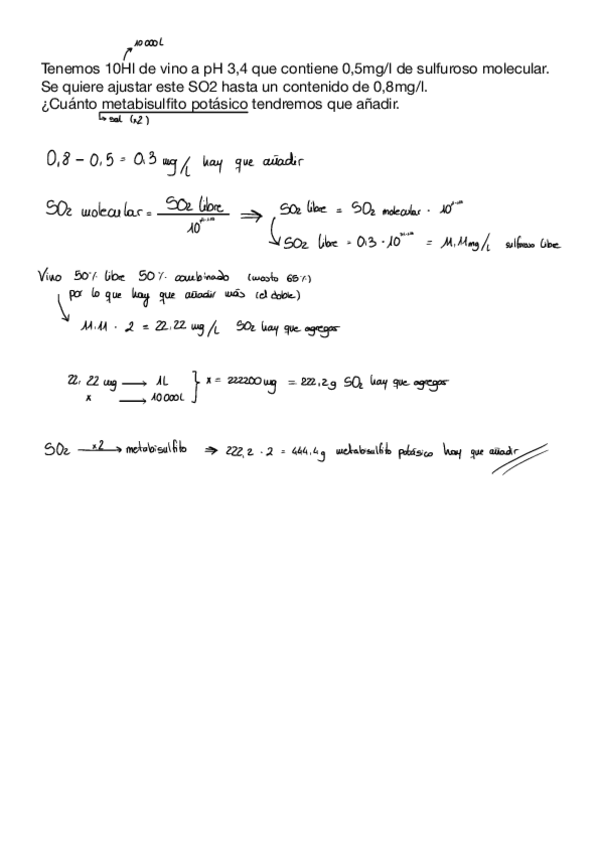 10 000 L
Tenemos 10Hl de vino a pH 3,4 que contiene 0,5mg/l de sulfuroso molecular.
Se quiere ajustar este SO2 hasta un contenido de 0,8mg/l.
¿Cuánto metabisulfito potásico tendremos que añadir.
↳ sal (x2)
0,8 - 0,5 = 0,3 mg/L hay que añadir
SO2 molecular = SO2 libre / 10 ⇒ SO2 libre = SO2 molecular · 10
SO2 libre = 0,3 · 10 = 11,11 mg/L sulfuroso libre
Vino 50% libre 50% combinado (mosto 65%)
por lo que hay que añadir más (el doble)
11,11 · 2 = 22,22 mg/L SO2 hay que agregar
22,22 mg → 1L } x = 222200 mg = 222,2 g SO2 hay que agregar
x → 10 000 L
SO2 x2 → metabisulfito ⇒ 222,2 · 2 = 444,4 g metabisulfito potásico hay que añadir